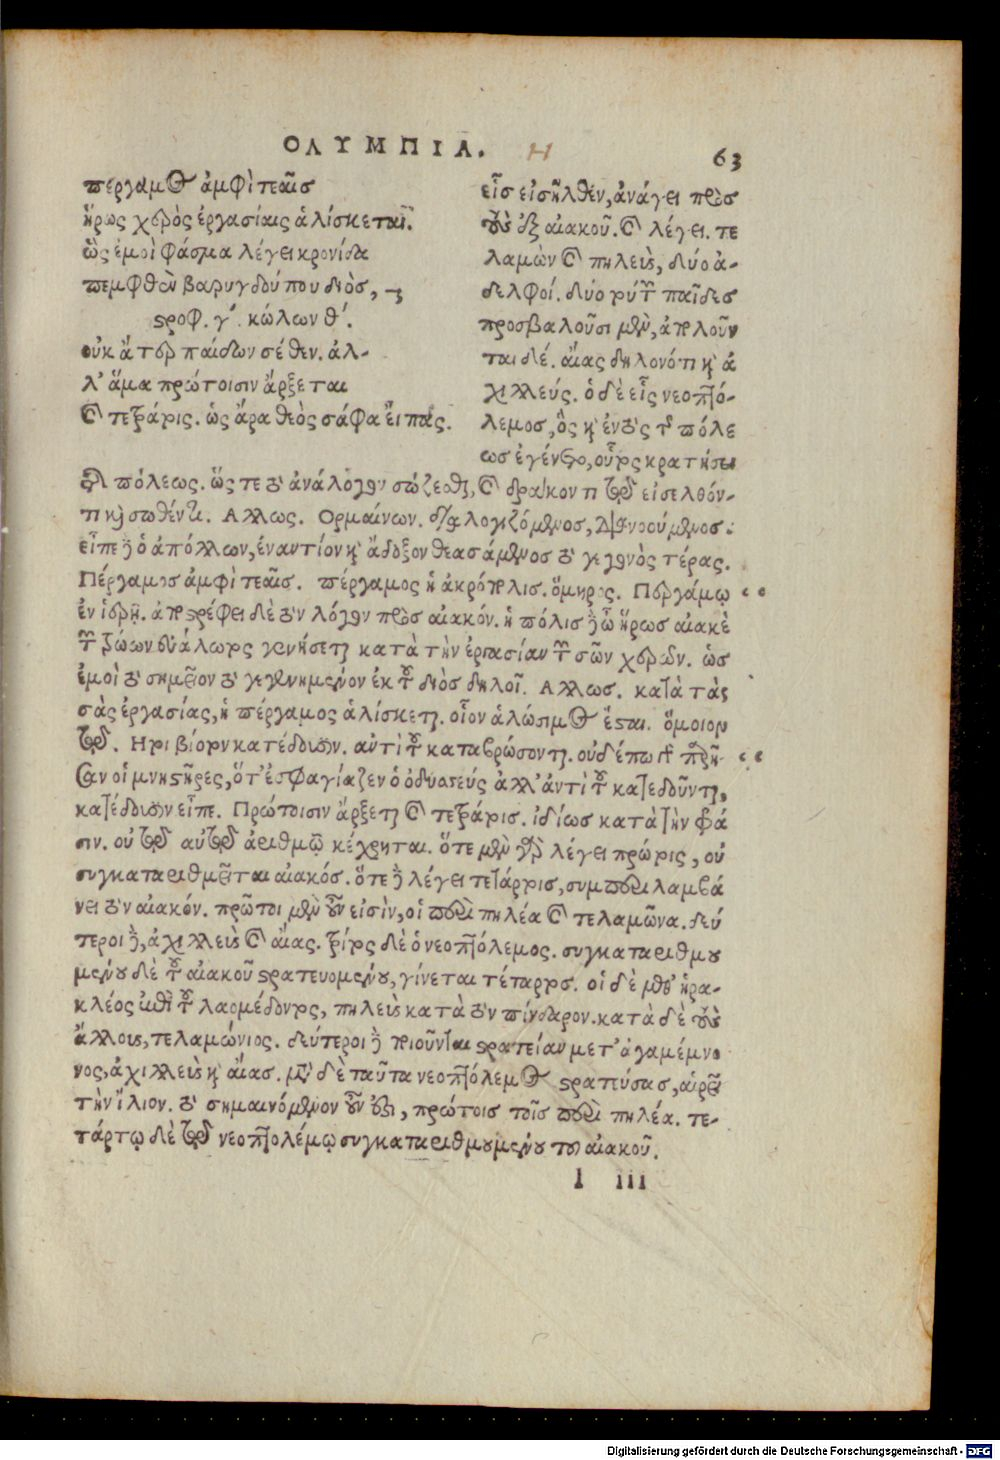 ΟΛΥΜΠΙΑ. Η 63
πέργαμος ἀμφὶ τεαῖς
ἥρως χερὸς ἐργασίαις ἁλίσκεται.
ὣς ἐμοὶ φάσμα λέγει κρονίδα
πεμφθὲν βαρυγδούπου διὸς,
στροφ. γ΄. κώλων θ΄.
οὐκ ἄτερ παίδων σέθεν. ἀλ-
λ' ἅμα πρώτοισιν ἄρξεται
καὶ τετράτοις. ὡς ἄρα θεὸς σάφα εἴπας.
εἷσ εἰσῆλθεν, ἀνάγει πρὸσ
τοὺς ἐξ αἰακοῦ. καὶ λέγει. τε
λαμὼν καὶ πηλεὺς, δύο ἀ-
δελφοί. δύο τούτων παῖδεσ
προσβαλοῦσι μὲν, ἀπελοῦν
ται δέ. αἴας δηλονότι καὶ ἀ
χιλλεύς. ὁ δὲ εἷς νεοπτόλε-
λεμοσ, ὃς καὶ ἐντὸς τῆς πόλε
ωσ ἐγένετο, οὗτος κρατήσει
τῆς πόλεως. ὥς τε τὸ ἀνάλογον σώζεσθαι, καὶ δράκοντι τῷ εἰσελθόν-
τι καὶ σωθέντι. Αλλως. Ορμαίνων. διαλογιζόμενος, διανοούμενος.
εἶπε δὲ ὁ ἀπόλλων, ἐναντίον καὶ ἄδοξον θεασάμενος τὸ γεγονὸς τέρας.
Πέργαμοσ ἀμφὶ τεαῖς. πέργαμος ἡ ἀκρόπολισ. ὅμηρος. Περγάμῳ
ἐν ἱερῇ. ἀποστρέφει δὲ τὸν λόγον πρὸσ αἰακόν. ἡ πόλις
γενήσεται κατὰ τὴν ἐργασίαν τῶν σῶν χερῶν. ὡσ
ἐμοὶ τὸ σημεῖον τὸ γεγενημένον ἐκ τοῦ διὸσ δηλοῖ. Αλλωσ. κατὰ τὰς
σὰς ἐργασίας, ἡ πέργαμος ἁλίσκεται. οἷον ἁλώσιμος ἔσται. ὅμοιον
τῷ. Ητοι βίοτον κατέδουσιν. ἀντὶ τοῦ καταβρώσονται. οὐδέπω
οἱ μνηστῆρες, ὅτ' ἐσφαγίαζεν ὁ ὀδυσσεύς ἀλλ' ἀντὶ τοῦ κατεδοῦνται,
κατέδουσιν εἶπε. Πρώτοισιν ἄρξεται καὶ τετράτοισ. ἰδίωσ κατὰ τὴν φρά
σιν. οὐ τῷ αὐτῷ ἀριθμῷ κέχρηται. ὅτε μὲν γὰρ λέγει πρώτοις, οὐ
συγκαταριθμεῖται αἰακός. ὅτε δὲ λέγει τετάρτοις, συμπεριλαμβά
νει τὸν αἰακόν. πρῶτοι μὲν οὖν εἰσὶν, οἱ περὶ πηλέα καὶ τελαμῶνα. δεύ
τεροι δὲ, ἀχιλλεὺς καὶ αἴας. τρίτος δὲ ὁ νεοπτόλεμος. συγκαταριθμου
μένου δὲ τοῦ αἰακοῦ στρατευομένου, γίνεται τέταρτος. οἱ δὲ μεθ' ἡρα-
κλέος ἐπὶ τοῦ λαομέδοντος, πηλεὺς κατὰ τὸν πίνδαρον. κατὰ δὲ τοὺς
ἄλλους, τελαμώνιος. δεύτεροι δὲ ποιοῦνται στρατείαν μετ' ἀγαμέμνο
νος, ἀχιλλεὺς καὶ αἴας. μετὰ δὲ ταῦτα νεοπτόλεμος στρατεύσας, αἱρεῖ
τὴν ἴλιον. τὸ σημαινόμενον οὖν ἐστι, πρώτοις τοῖς περὶ πηλέα. τε-
τάρτῳ δὲ τῷ νεοπτολέμῳ συγκαταριθμουμένου τοῦ αἰακοῦ.
I iii
Digitalisierung gefördert durch die Deutsche Forschungsgemeinschaft - DFG